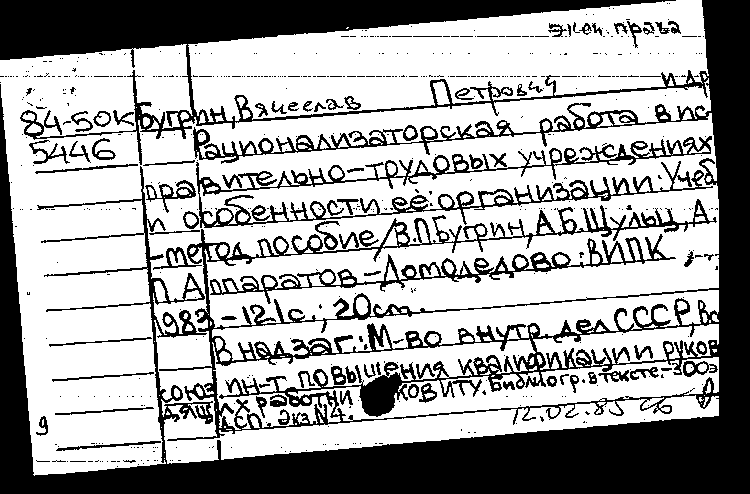 экон. права
84-50к Бугрин, Вячеслав Петрович и др
5446 Рационализаторская работа в ис-
правительно-трудовых учреждениях
и особенности ее организации: Учеб
-метод. пособие/В.П.Бугрин, А.Б.Щульц, А.
П.Аппаратов.-Домодедово: ВИПК,
1983.-121с.; 20см.
В надзаг.: М-во внутр. дел СССР, Вс
союз ин-т повышения квалификации руков
дящ их работни ков ИТУ. Библиогр. в тексте.-300э
ДСП. Экз.N4.
12.02.85
9